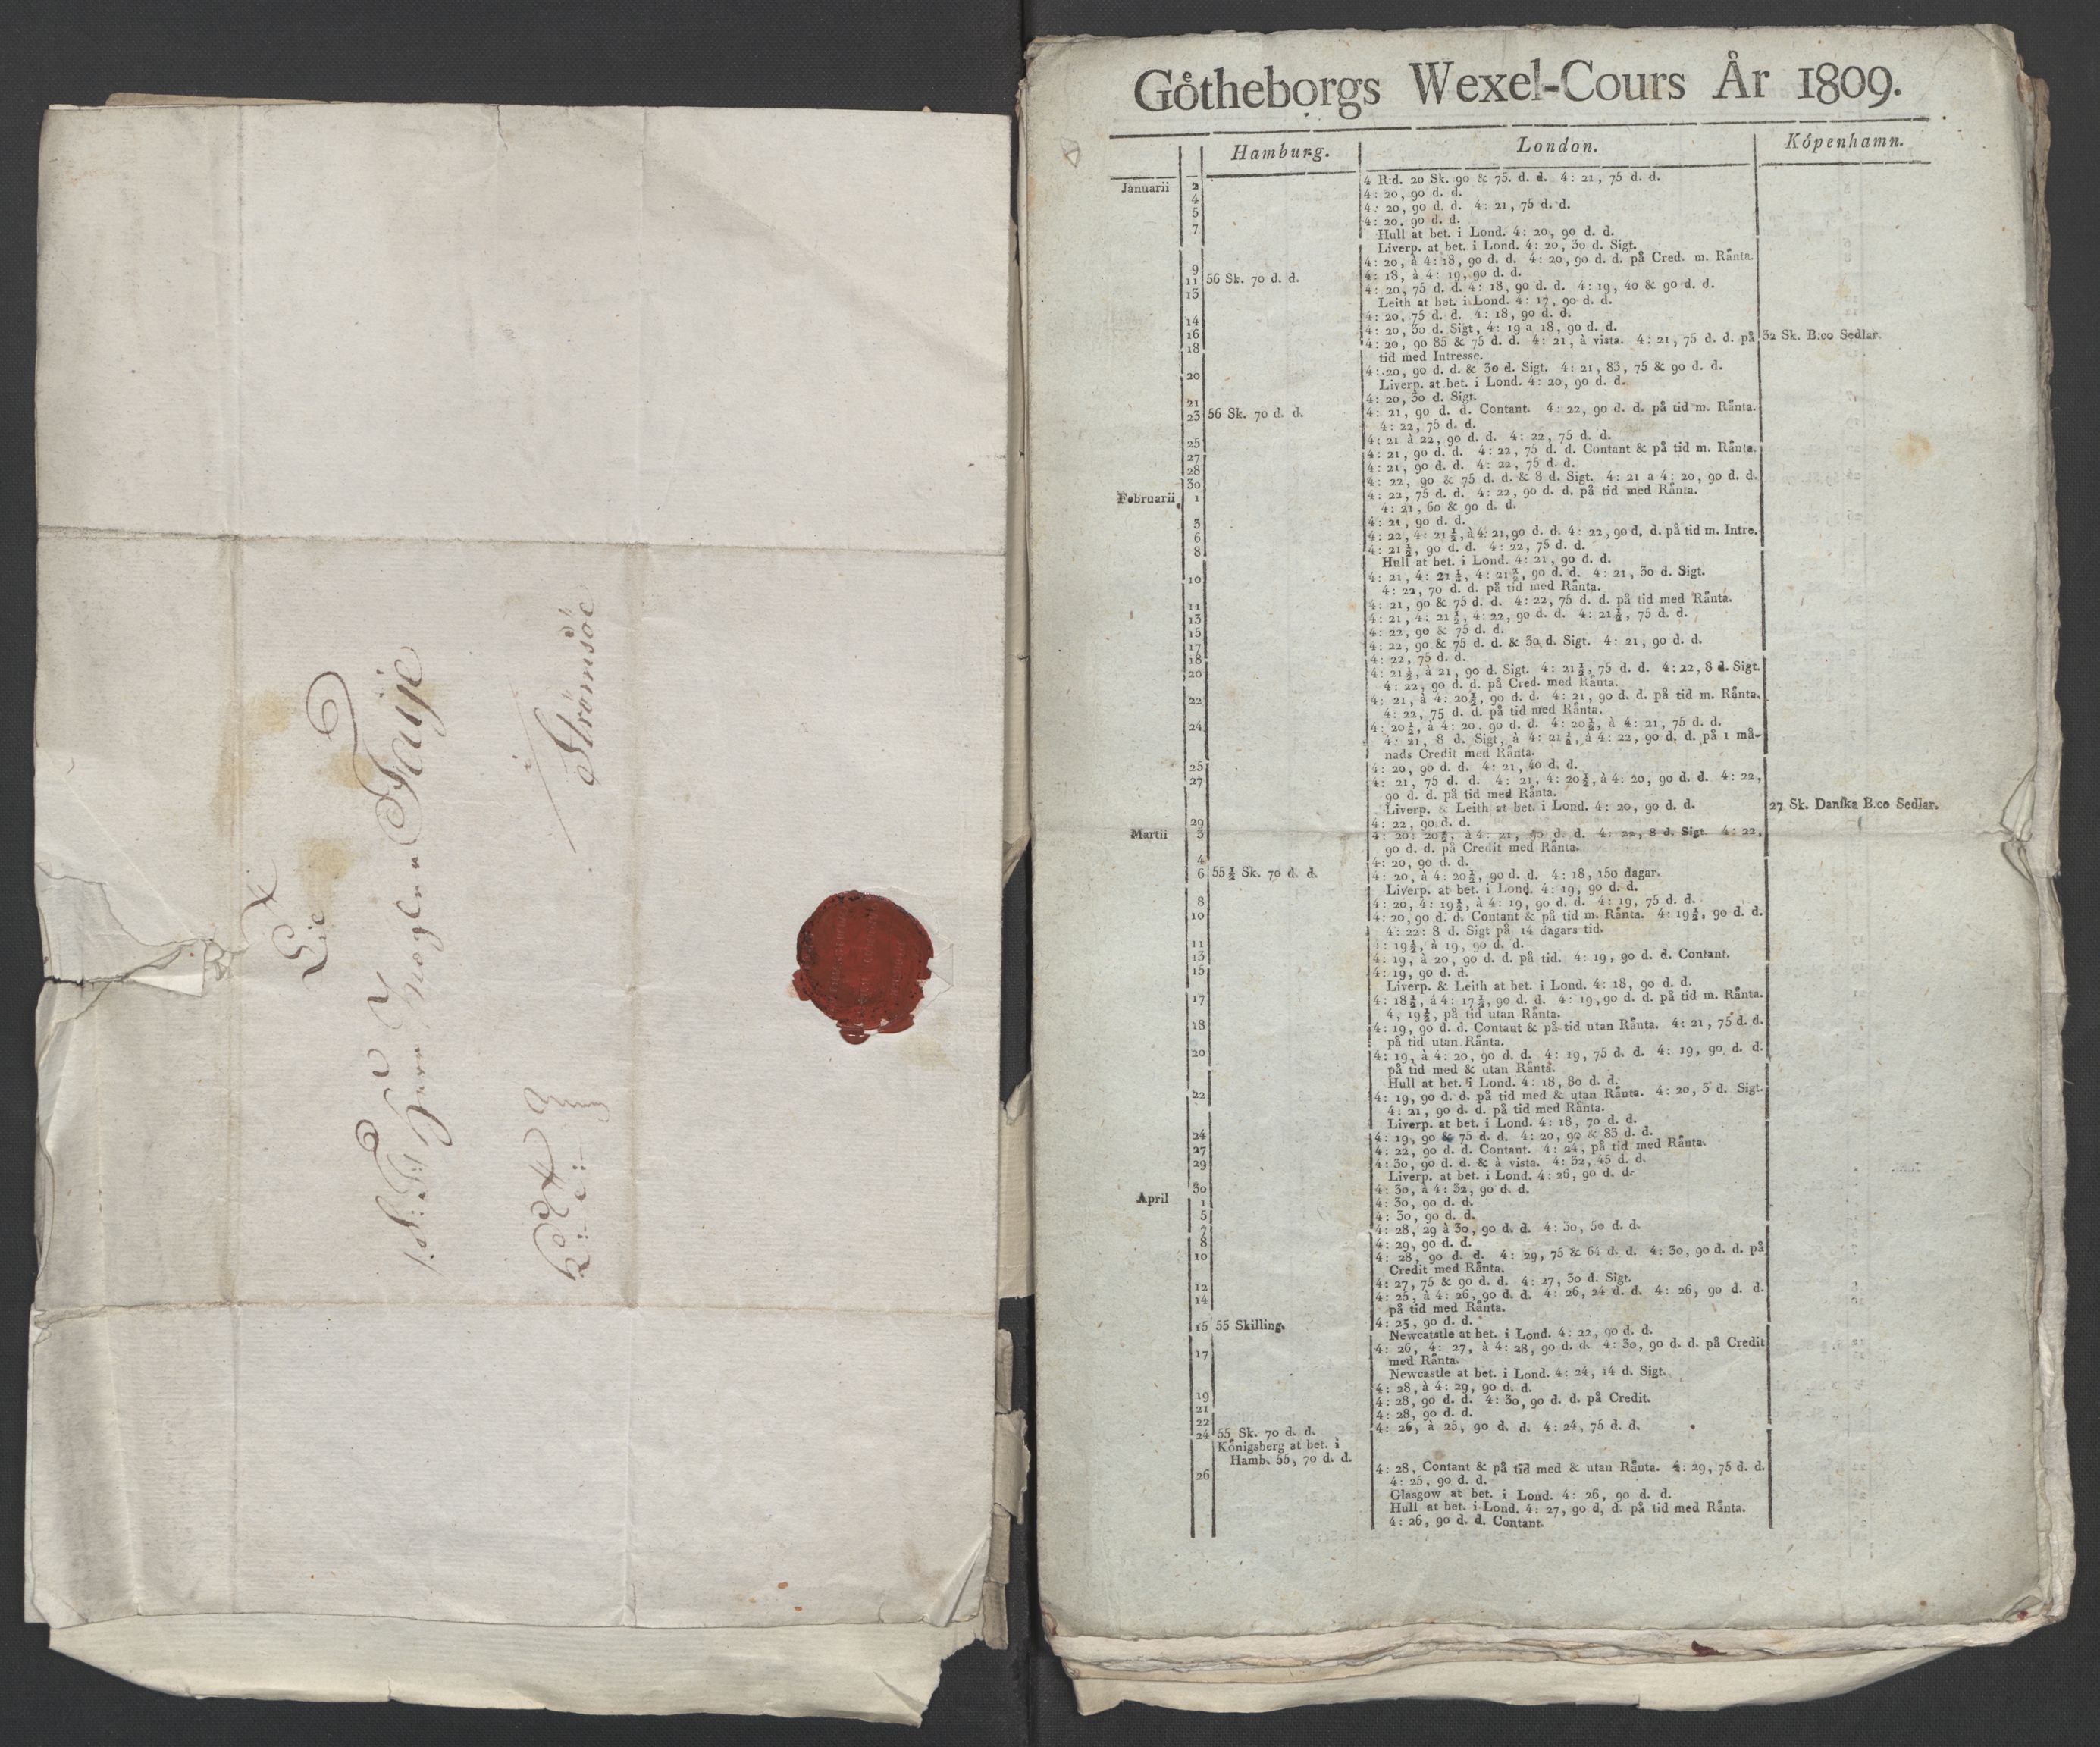 Herr
Strømsöe
Götheborgs Wexel-Cours År 1809.
Hamburg. London. Köpenhamn.
Januarii 2 4 R:d. 20 Sk. 90 & 75. d. d. 4: 21, 75 d. d.
4 4: 20, 90 d. d.
5 4: 20, 90 d. d. 4: 21, 75 d. d.
7 4: 20, 90 d. d.
Hull at bet. i Lond. 4: 20, 90 d. d.
Liverp. at bet. i Lond. 4: 20, 30 d. Sigt.
9 4: 20, à 4: 18, 90 d. d. 4: 20, 90 d. d. på Cred. m. Rånta.
11 56 Sk. 70 d. d. 4: 18, à 4: 19, 90 d. d.
13 4: 20, 75 d. d. 4: 18, 90 d. d. 4: 19, 40 & 90 d. d.
Leith at bet. i Lond. 4: 17, 90 d. d.
14 4: 20, 75 d. d. 4: 18, 90 d. d.
16 4: 20, 30 d. Sigt, 4: 19 a 18, 90 d. d.
18 4: 20, 90 85 & 75 d. d. 4: 21, à vista. 4: 21, 75 d. d. på 32 Sk. B:co Sedlar.
tid med Intresse.
20 4: 20, 90 d. d. & 30 d. Sigt. 4: 21, 83, 75 & 90 d. d.
Liverp. at bet. i Lond. 4: 20, 90 d. d.
21 4: 20, 30 d. Sigt.
23 56 Sk. 70 d. d. 4: 21, 90 d. d. Contant. 4: 22, 90 d. d. på tid m. Rånta.
4: 22, 75 d. d.
25 4: 21 à 22, 90 d. d. 4: 22, 75 d. d.
27 4: 21, 90 d. d. 4: 22, 75 d. d. Contant & på tid m. Rånta.
28 4: 21, 90 d. d. 4: 22, 75 d. d.
30 4: 22, 90 & 75 d. d. & 8 d. Sigt. 4: 21 a 4: 20, 90 d. d.
Februarii 1 4: 22, 75 d. d. 4: 22, 90 d. d. på tid med Rånta.
4: 21, 60 & 90 d. d.
3 4: 21, 90 d. d.
6 4: 22, 4: 21½, à 4: 21, 90 d. d. 4: 22, 90 d. d. på tid m. Intre.
8 4: 21½, 90 d. d. 4: 22, 75 d. d.
Hull at bet. i Lond. 4: 21, 90 d. d.
10 4: 21, 4: 21¼, 4: 21½, 90 d. d. 4: 21, 30 d. Sigt.
4: 22, 70 d. d. på tid med Rånta.
11 4: 21, 90 & 75 d. d. 4: 22, 75 d. d. på tid med Rånta.
13 4: 21, 4: 21½, 4: 22, 90 d. d. 4: 21½, 75 d. d.
15 4: 22, 90 & 75 d. d.
17 4: 22, 90 & 75 d. d. & 30 d. Sigt. 4: 21, 90 d. d.
18 4: 22, 75 d. d.
20 4: 21½, à 21, 90 d. Sigt. 4: 21½, 75 d. d. 4: 22, 8 d. Sigt.
4: 22, 90 d. d. på Cred. med Rånta.
22 4: 21, à 4: 20½, 90 d. d. 4: 21, 90 d. d. på tid m. Rånta.
4: 22, 75 d. d. på tid med Rånta.
24 4: 20½, à 4: 20, 90 d. d. 4: 20½, à 4: 21, 75 d. d.
4: 21, 8 d. Sigt, à 4: 21½, à 4: 22, 90 d. d. på 1 må-
nads Credit med Rånta.
25 4: 20, 90 d. d. 4: 21, 40 d. d.
27 4: 21, 75 d. d. 4: 21, 4: 20½, à 4: 20, 90 d. d. 4: 22,
90 d. d. på tid med Rånta.
Liverp. & Leith at bet. i Lond. 4: 20, 90 d. d. 27 Sk. Danska B:co Sedlar.
29 4: 22, 90 d. d.
Martii 3 4: 20: 20½, à 4: 21, 90 d. d. 4: 22, 8 d. Sigt. 4: 22,
90 d. d. på Credit med Rånta.
4 4: 20, 90 d. d.
6 55½ Sk. 70 d. d. 4: 20, à 4: 20½, 90 d. d. 4: 18, 150 dagar.
Liverp. at bet. i Lond. 4: 19, 90 d. d.
8 4: 20, 4: 19½, à 4: 19, 90 d. d. 4: 19, 75 d. d.
10 4: 20, 90 d. d. Contant & på tid m. Rånta. 4: 19½, 90 d. d.
4: 22: 8 d. Sigt på 14 dagars tid.
11 4: 19½, à 19, 90 d. d.
13 4: 19, à 20, 90 d. d. på tid. 4: 19, 90 d. d. Contant.
15 4: 19, 90 d. d.
Liverp. & Leith at bet. i Lond. 4: 18, 90 d. d.
17 4: 18½, à 4: 17½, 90 d. d. 4: 19, 90 d. d. på tid m. Rånta.
4, 19½, på tid utan Rånta.
18 4: 19, 90 d. d. Contant & på tid utan Rånta. 4: 21, 75 d. d.
på tid utan Rånta.
20 4: 19, à 4: 20, 90 d. d. 4: 19, 75 d. d. 4: 19, 90 d. d.
på tid med & utan Rånta.
Hull at bet. i Lond. 4: 18, 80 d. d.
22 4: 19, 90 d. d. på tid med & utan Rånta. 4: 20, 3 d. Sigt.
4: 21, 90 d. d. på tid med Rånta.
Liverp. at bet. i Lond. 4: 18, 70 d. d.
24 4: 19, 90 & 75 d. d. 4: 20, 90 & 83 d. d.
27 4: 22, 90 d. d. Contant. 4: 24, på tid med Rånta.
29 4: 30, 90 d. d. & à vista. 4: 32, 45 d. d.
Liverp. at bet. i Lond. 4: 26, 90 d. d.
30 4: 30, à 4: 32, 90 d. d.
April 1 4: 30, 90 d. d.
5 4: 30, 90 d. d.
7 4: 28, 29 à 30, 90 d. d. 4: 30, 50 d. d.
8 4: 29, 90 d. d.
10 4: 28, 90 d. d. 4: 29, 75 & 64 d. d. 4: 30, 90 d. d. på
Credit med Rånta.
12 4: 27, 75 & 90 d. d. 4: 27, 30 d. Sigt.
14 4: 25, à 4: 26, 90 d. d. 4: 26, 24 d. d. 4: 26, 90 d. d.
på tid med Rånta.
15 55 Skilling. 4: 25, 90 d. d.
Newcatstle at bet. i Lond. 4: 22, 90 d. d.
17 4: 26, 4: 27, à 4: 28, 90 d. d. 4: 30, 90 d. d. på Credit
med Rånta.
Newcastle at bet. i Lond. 4: 24, 14 d. Sigt.
19 4: 28, à 4: 29, 90 d. d.
21 4: 28, 90 d. d. 4: 30, 90 d. d. på Credit.
22 4: 28, 90 d. d.
24 55 Sk. 70 d. d. 4: 26, à 25, 90 d. d. 4: 24, 75 d. d.
Königsberg at bet. i
Hamb. 55, 70 d. d.
26 4: 28, Contant & på tid med & utan Rånta. 4: 29, 75 d. d.
4: 25, 90 d. d.
Glasgow at bet. i Lond. 4: 26, 90 d. d.
Hull at bet. i Lond. 4: 27, 90 d. d. på tid med Rånta.
4: 26, 90 d. d. Contant.